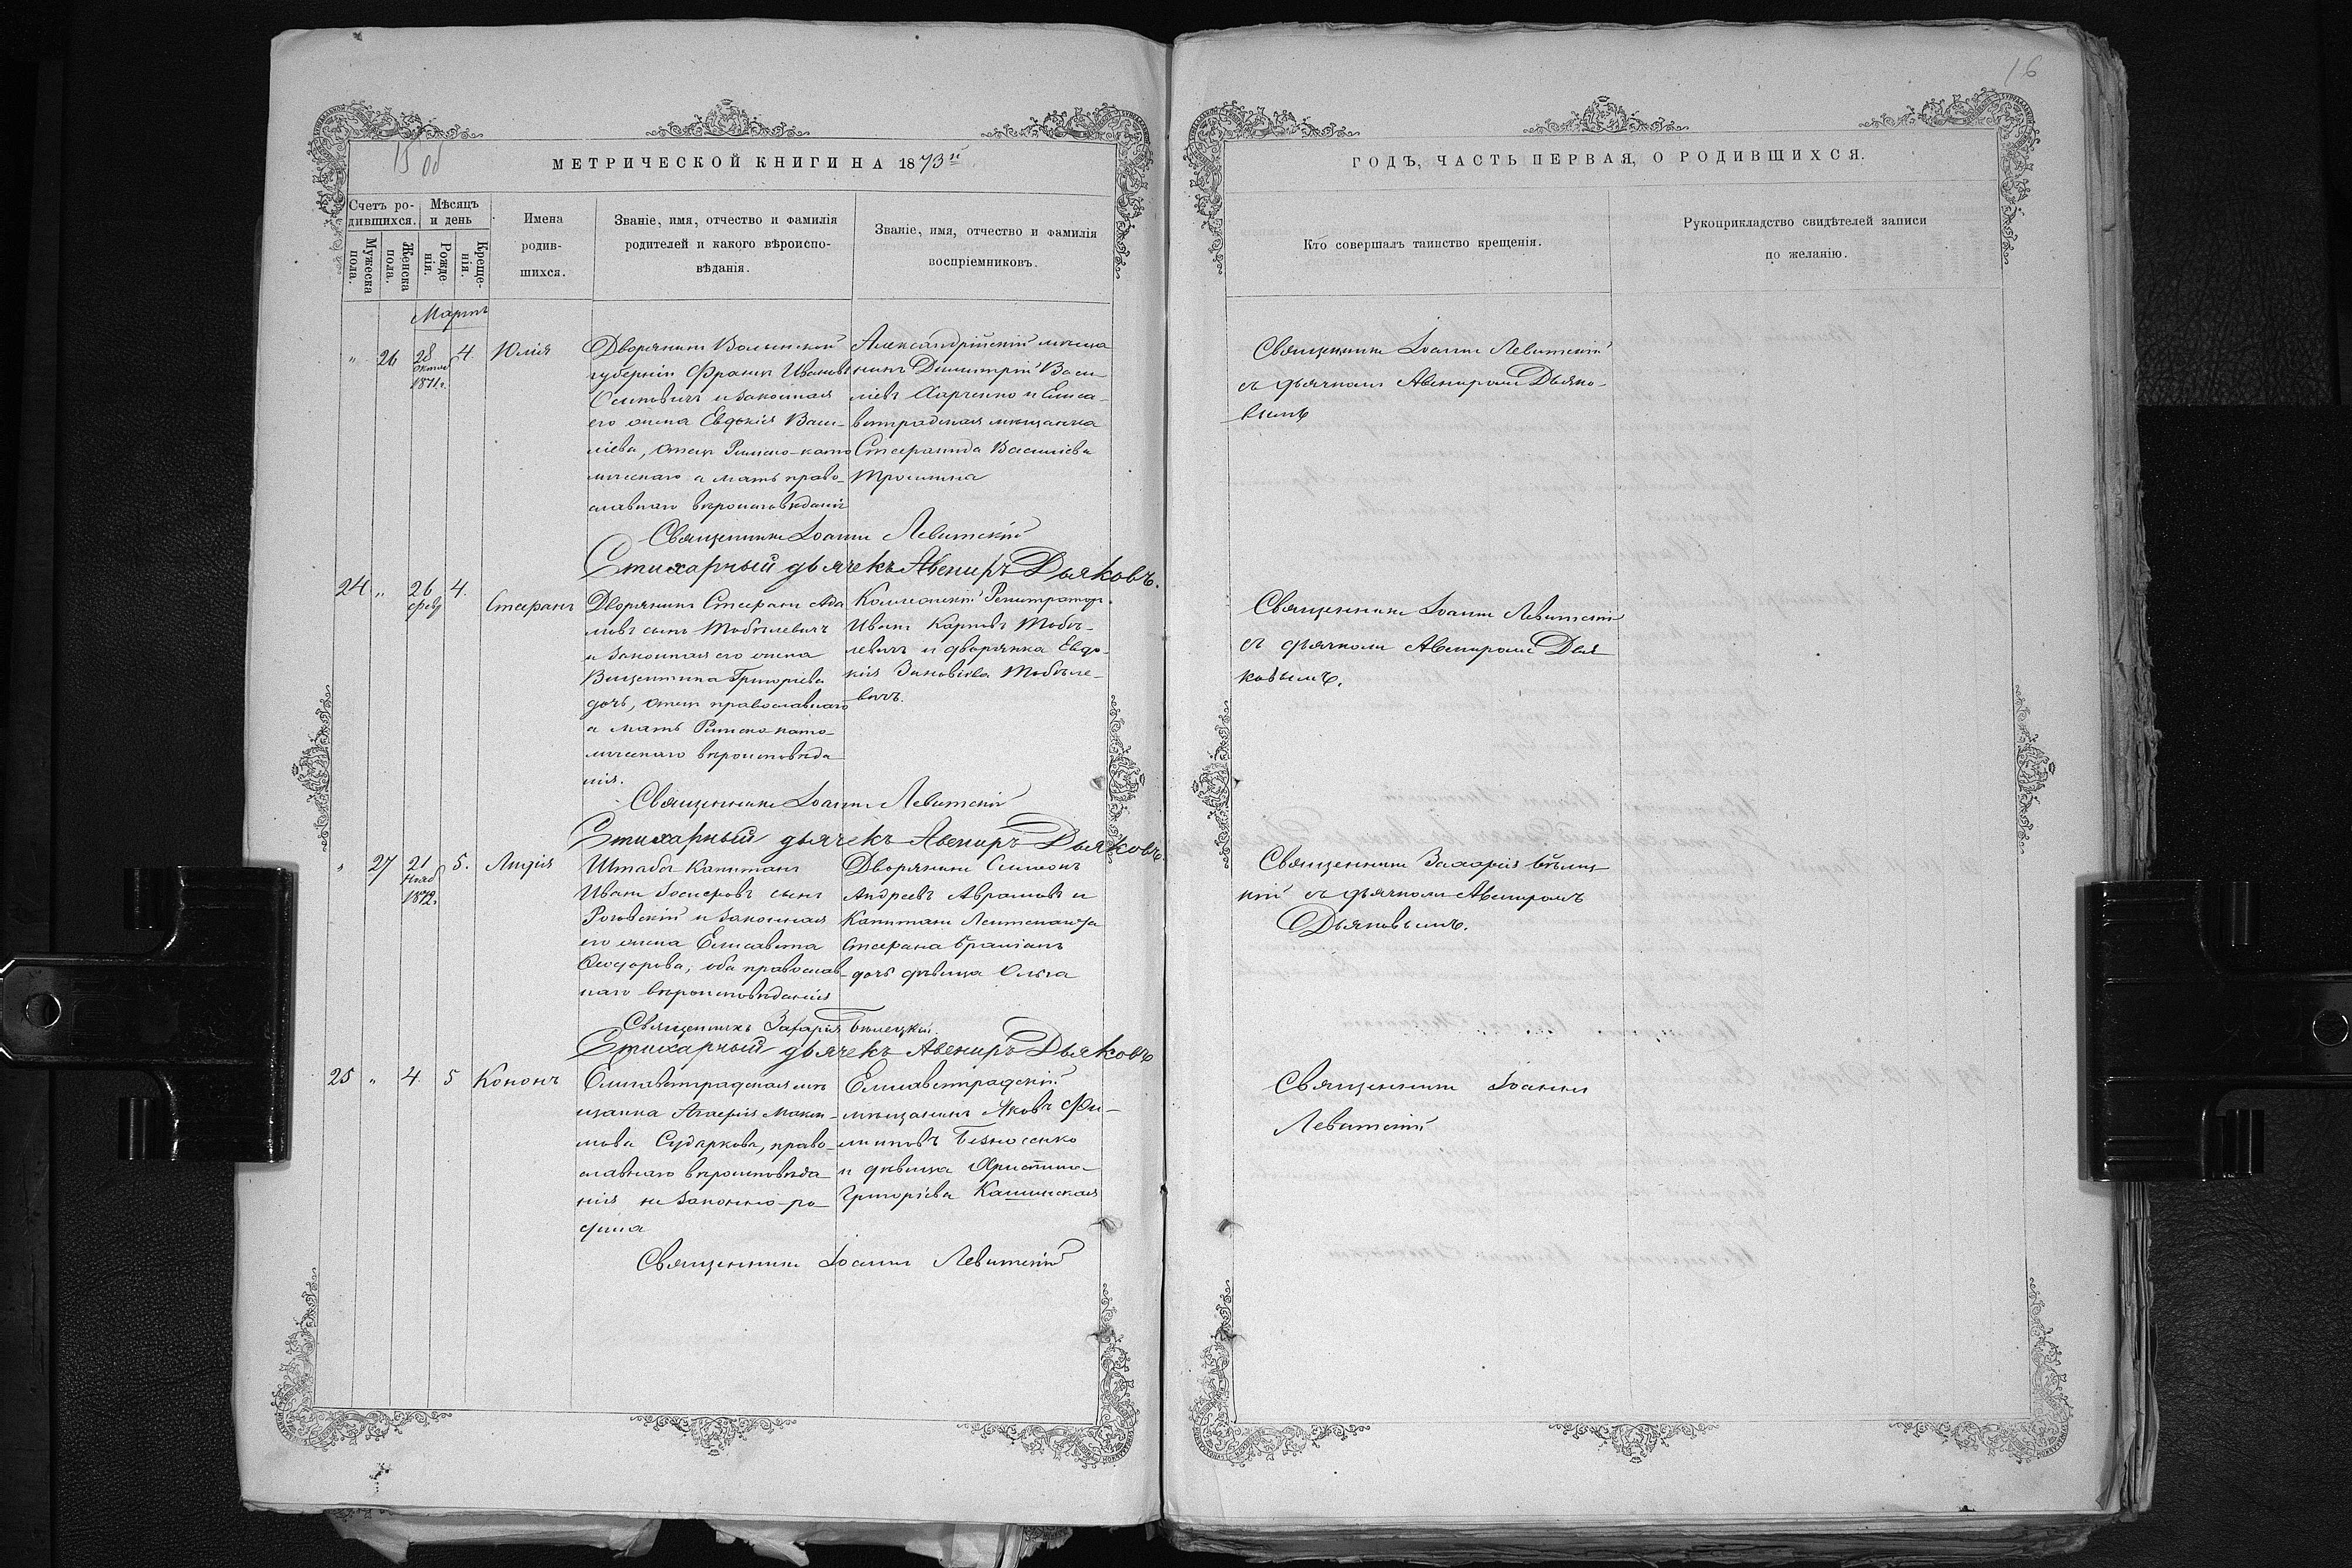 15 об
МЕТРИЧЕСКОЙ КНИГИ НА 1873й
Счетъ ро-
дившихся.
Мѣсяцъ
и день
Мужеска
пола.
Женска
пола.
Рожде
нія.
Креще-
нія.
Имена
родив-
шихся.
Званіе, имя, отчество и фамилія
родителей и какого вѣроиспо-
вѣданія.
Званіе, имя, отчество и фамилія
воспріемниковъ.
Мартъ
" 26 28 4. Юлія
Октяб
1871г.
Дворянинъ Волынской
губерніи Францъ Ивановъ
Осиповичъ и законная
его жена Евдокія Васи-
ліева, отецъ Римско-като
лическаго а мать право-
славнаго вѣроисповѣданій
Александрійскій мѣща
нинъ Димитрій Васи-
ліевъ Харченко и Елиса-
ветградская мѣщанка
Стефанида Василіева
Священникъ Іоаннъ Левитскій
Стихарный дьячекъ Авениръ Дьяковъ.
24 " 26 4. Стефанъ
февр
Дворянинъ Стефанъ Ада
мовъ сынъ Тобѣлевичъ
и законная его жена
Винцентина Григоріева
дочь, отецъ православнаго
а мать Римско като-
лическаго вѣроисповѣда
нія.
Коллежскій Регистраторъ
Иванъ Карповъ Тобѣ-
левичъ и дворянка Евдо-
кія Зиновіева Тобѣле-
вичъ.
Священникъ Іоаннъ Левитскій
Стихарный дьячекъ Авениръ Дьяковъ.
" 27 21 5. Лидія
Нояб
1872г.
Штабсъ Капитанъ
Иванъ сынъ
Роговскій и законная
его жена Елисавета
Ѳеодорова, оба православ-
наго вѣроисповѣданія
Дворянинъ Симеонъ
Андреевъ Аврамовъ и
Капитанъ Лейтенанта
Стефана
дочь дѣвица Ольга
Священникъ Захарія Бѣлецкій.
Стихарный дьячекъ Авениръ Дьяковъ
25 " 4. 5 Кононъ
Елисаветградская мѣ
щанка Агафія Макси-
мова Сударкова, право-
славнаго вѣроисповѣда
нія незаконно-ро
Елисаветградскій
мѣщанинъ Яковъ Фи-
липповъ Безносенко
и дѣвица Христина
Григоріева Кашинская
Священникъ Іоаннъ Левитскій
16
ГОДЪ, ЧАСТЬ ПЕРВАЯ, О РОДИВШИХСЯ.
Кто совершалъ таинство крещенія.
Рукоприкладство свидѣтелей записи
по желанію.
Священникъ Іоаннъ Левитскій
съ дьячкомъ Авениромъ Дьяко-
вымъ
Священникъ Іоаннъ Левитскій
съ дьячкомъ Авениромъ Дья
ковымъ.
Священникъ Захарія Бѣлец
кій съ дьячкомъ Авениромъ
Дьяковымъ.
Священникъ Іоаннъ
Левитскій